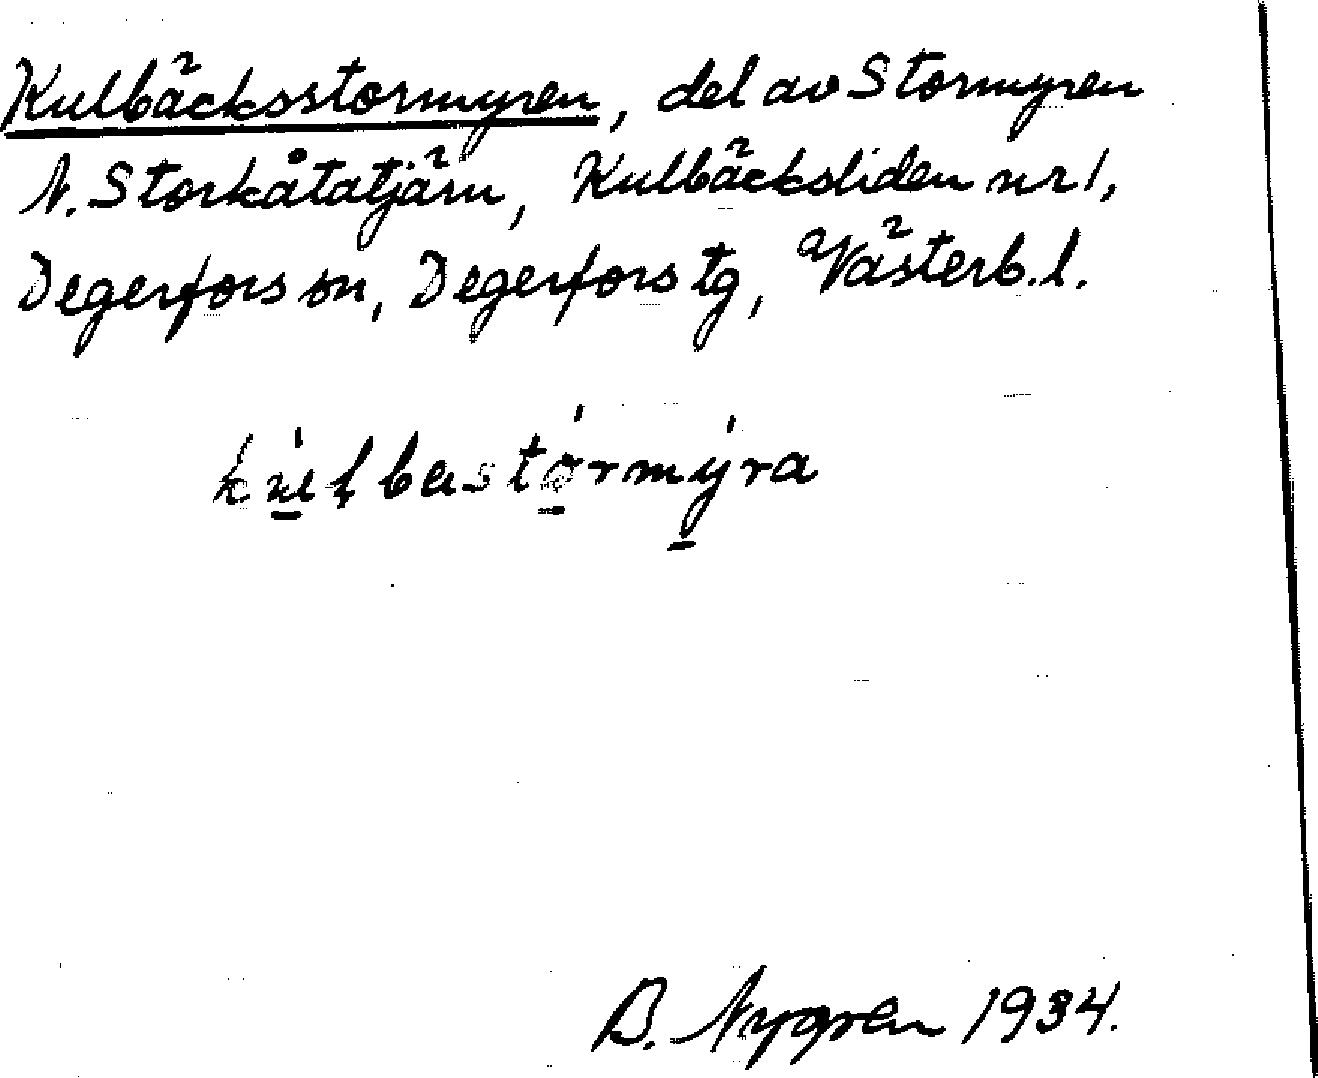 Kulbäcksstormyren, del av Stormyren
N. Storkåtatjärn, Kulbäcksliden nr 1,
Degerfors sn, Degerfors tg, Västerb. l.
kúlbastórmýra
B. Nygren 1934.